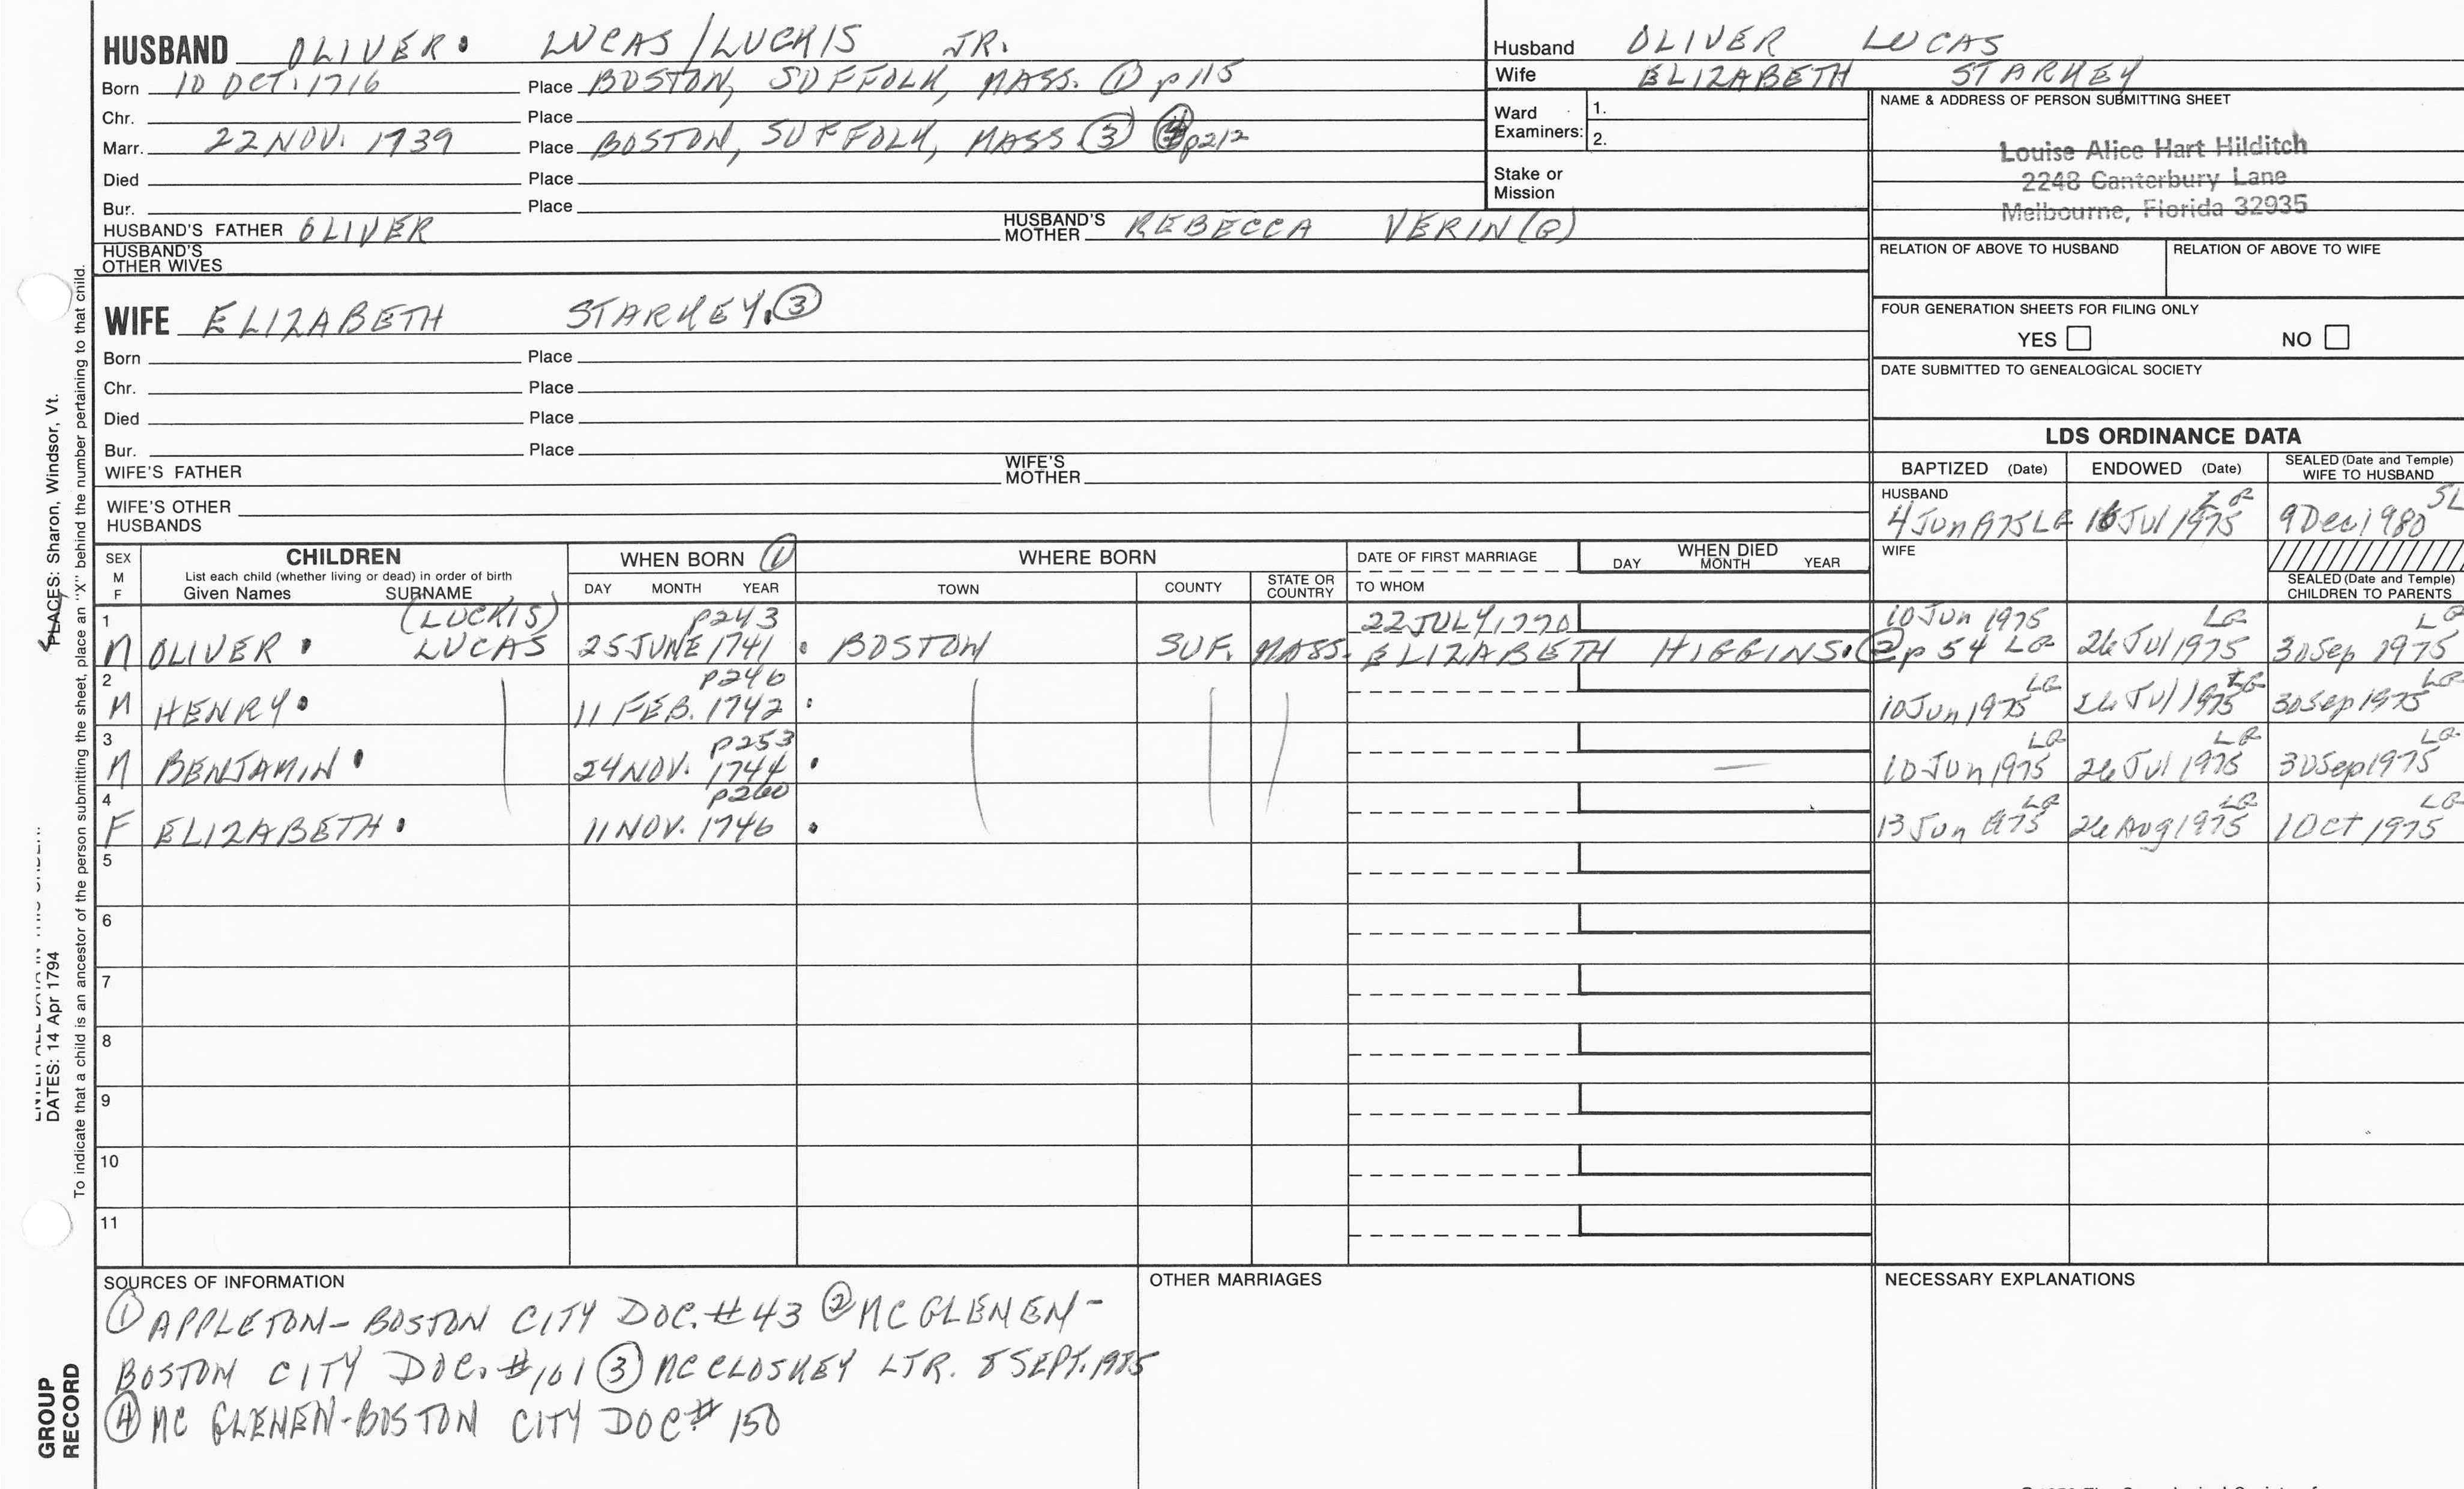 HUSBAND OLIVER. LUCAS/LUCKIS JR.
Born 10 OCT. 1716 Place BOSTON, SUFFOLK, MASS. ① p 115
Chr. Place
Marr. 22 NOV. 1739 Place BOSTON, SUFFOLK, MASS ③ ④ p212
Died Place
Bur. Place
HUSBAND'S FATHER OLIVER HUSBAND'S MOTHER REBECCA VERIN(G)
HUSBAND'S OTHER WIVES
Husband OLIVER LUCAS
Wife ELIZABETH STARKEY
Ward Examiners: 1.
2.
Stake or Mission
NAME & ADDRESS OF PERSON SUBMITTING SHEET
Louise Alice Hart Hilditch
2248 Canterbury Lane
Melbourne, Florida 32935
RELATION OF ABOVE TO HUSBAND RELATION OF ABOVE TO WIFE
FOUR GENERATION SHEETS FOR FILING ONLY
YES NO
DATE SUBMITTED TO GENEALOGICAL SOCIETY
WIFE ELIZABETH STARKEY. ③
Born Place
Chr. Place
Died Place
Bur. Place
WIFE'S FATHER WIFE'S MOTHER
WIFE'S OTHER HUSBANDS
LDS ORDINANCE DATA
BAPTIZED (Date) ENDOWED (Date) SEALED (Date and Temple) WIFE TO HUSBAND
HUSBAND LG SL
4 Jun 1975 LG 16 Jul 1975 9 Dec 1980
WIFE
SEALED (Date and Temple) CHILDREN TO PARENTS
SEX M F CHILDREN WHEN BORN ① WHERE BORN DATE OF FIRST MARRIAGE WHEN DIED
List each child (whether living or dead) in order of birth
Given Names SURNAME DAY MONTH YEAR TOWN COUNTY STATE OR COUNTRY TO WHOM DAY MONTH YEAR
1 (LUCKIS) p243 22 JULY 1770 10 Jun 1975 LG LG
M OLIVER. LUCAS 25 JUNE 1741 . BOSTON SUF. MASS. ELIZABETH HIGGINS. ② p 54 LG 26 Jul 1975 30 Sep 1975
2 p246 LG LG LG
M HENRY. 11 FEB. 1742 . 10 Jun 1975 26 Jul 1975 30 Sep 1975
3 p253 LG LG LG
M BENJAMIN. 24 NOV. 1744 . — 10 Jun 1975 26 Jul 1975 30 Sep 1975
4 p260 LG LG LG
F ELIZABETH. 11 NOV. 1746 . 13 Jun 1975 26 Aug 1975 1 Oct 1975
5
6
7
8
9
10
11
SOURCES OF INFORMATION
① APPLETON- BOSTON CITY DOC. #43 ② MC GLENEN-
BOSTON CITY DOC. #101 ③ MC CLOSKEY LTR. 8 SEPT. 1985
④ MC GLENEN-BOSTON CITY DOC # 150
OTHER MARRIAGES
NECESSARY EXPLANATIONS
PLACES: Sharon, Windsor, Vt.
DATES: 14 Apr 1794
To indicate that a child is an ancestor of the person submitting the sheet, place an "X" behind the number pertaining to that child.
GROUP
RECORD